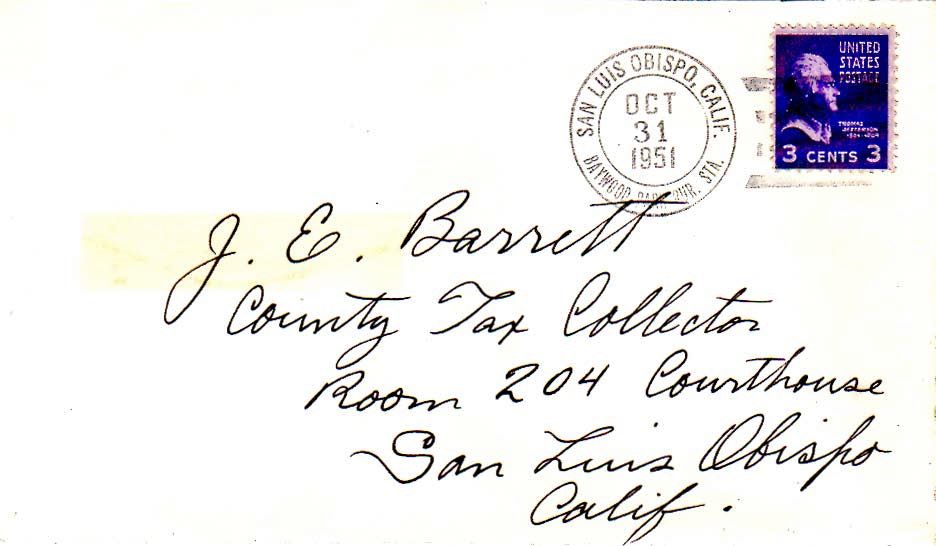 SAN LUIS OBISPO, CALIF.
OCT
31
1951
BAYWOOD PARK RUR. STA.
UNITED
STATES
POSTAGE
THOMAS
JEFFERSON
3 CENTS 3
J. E. Barrett
County Tax Collector
Room 204 Courthouse
San Luis Obispo
Calif.